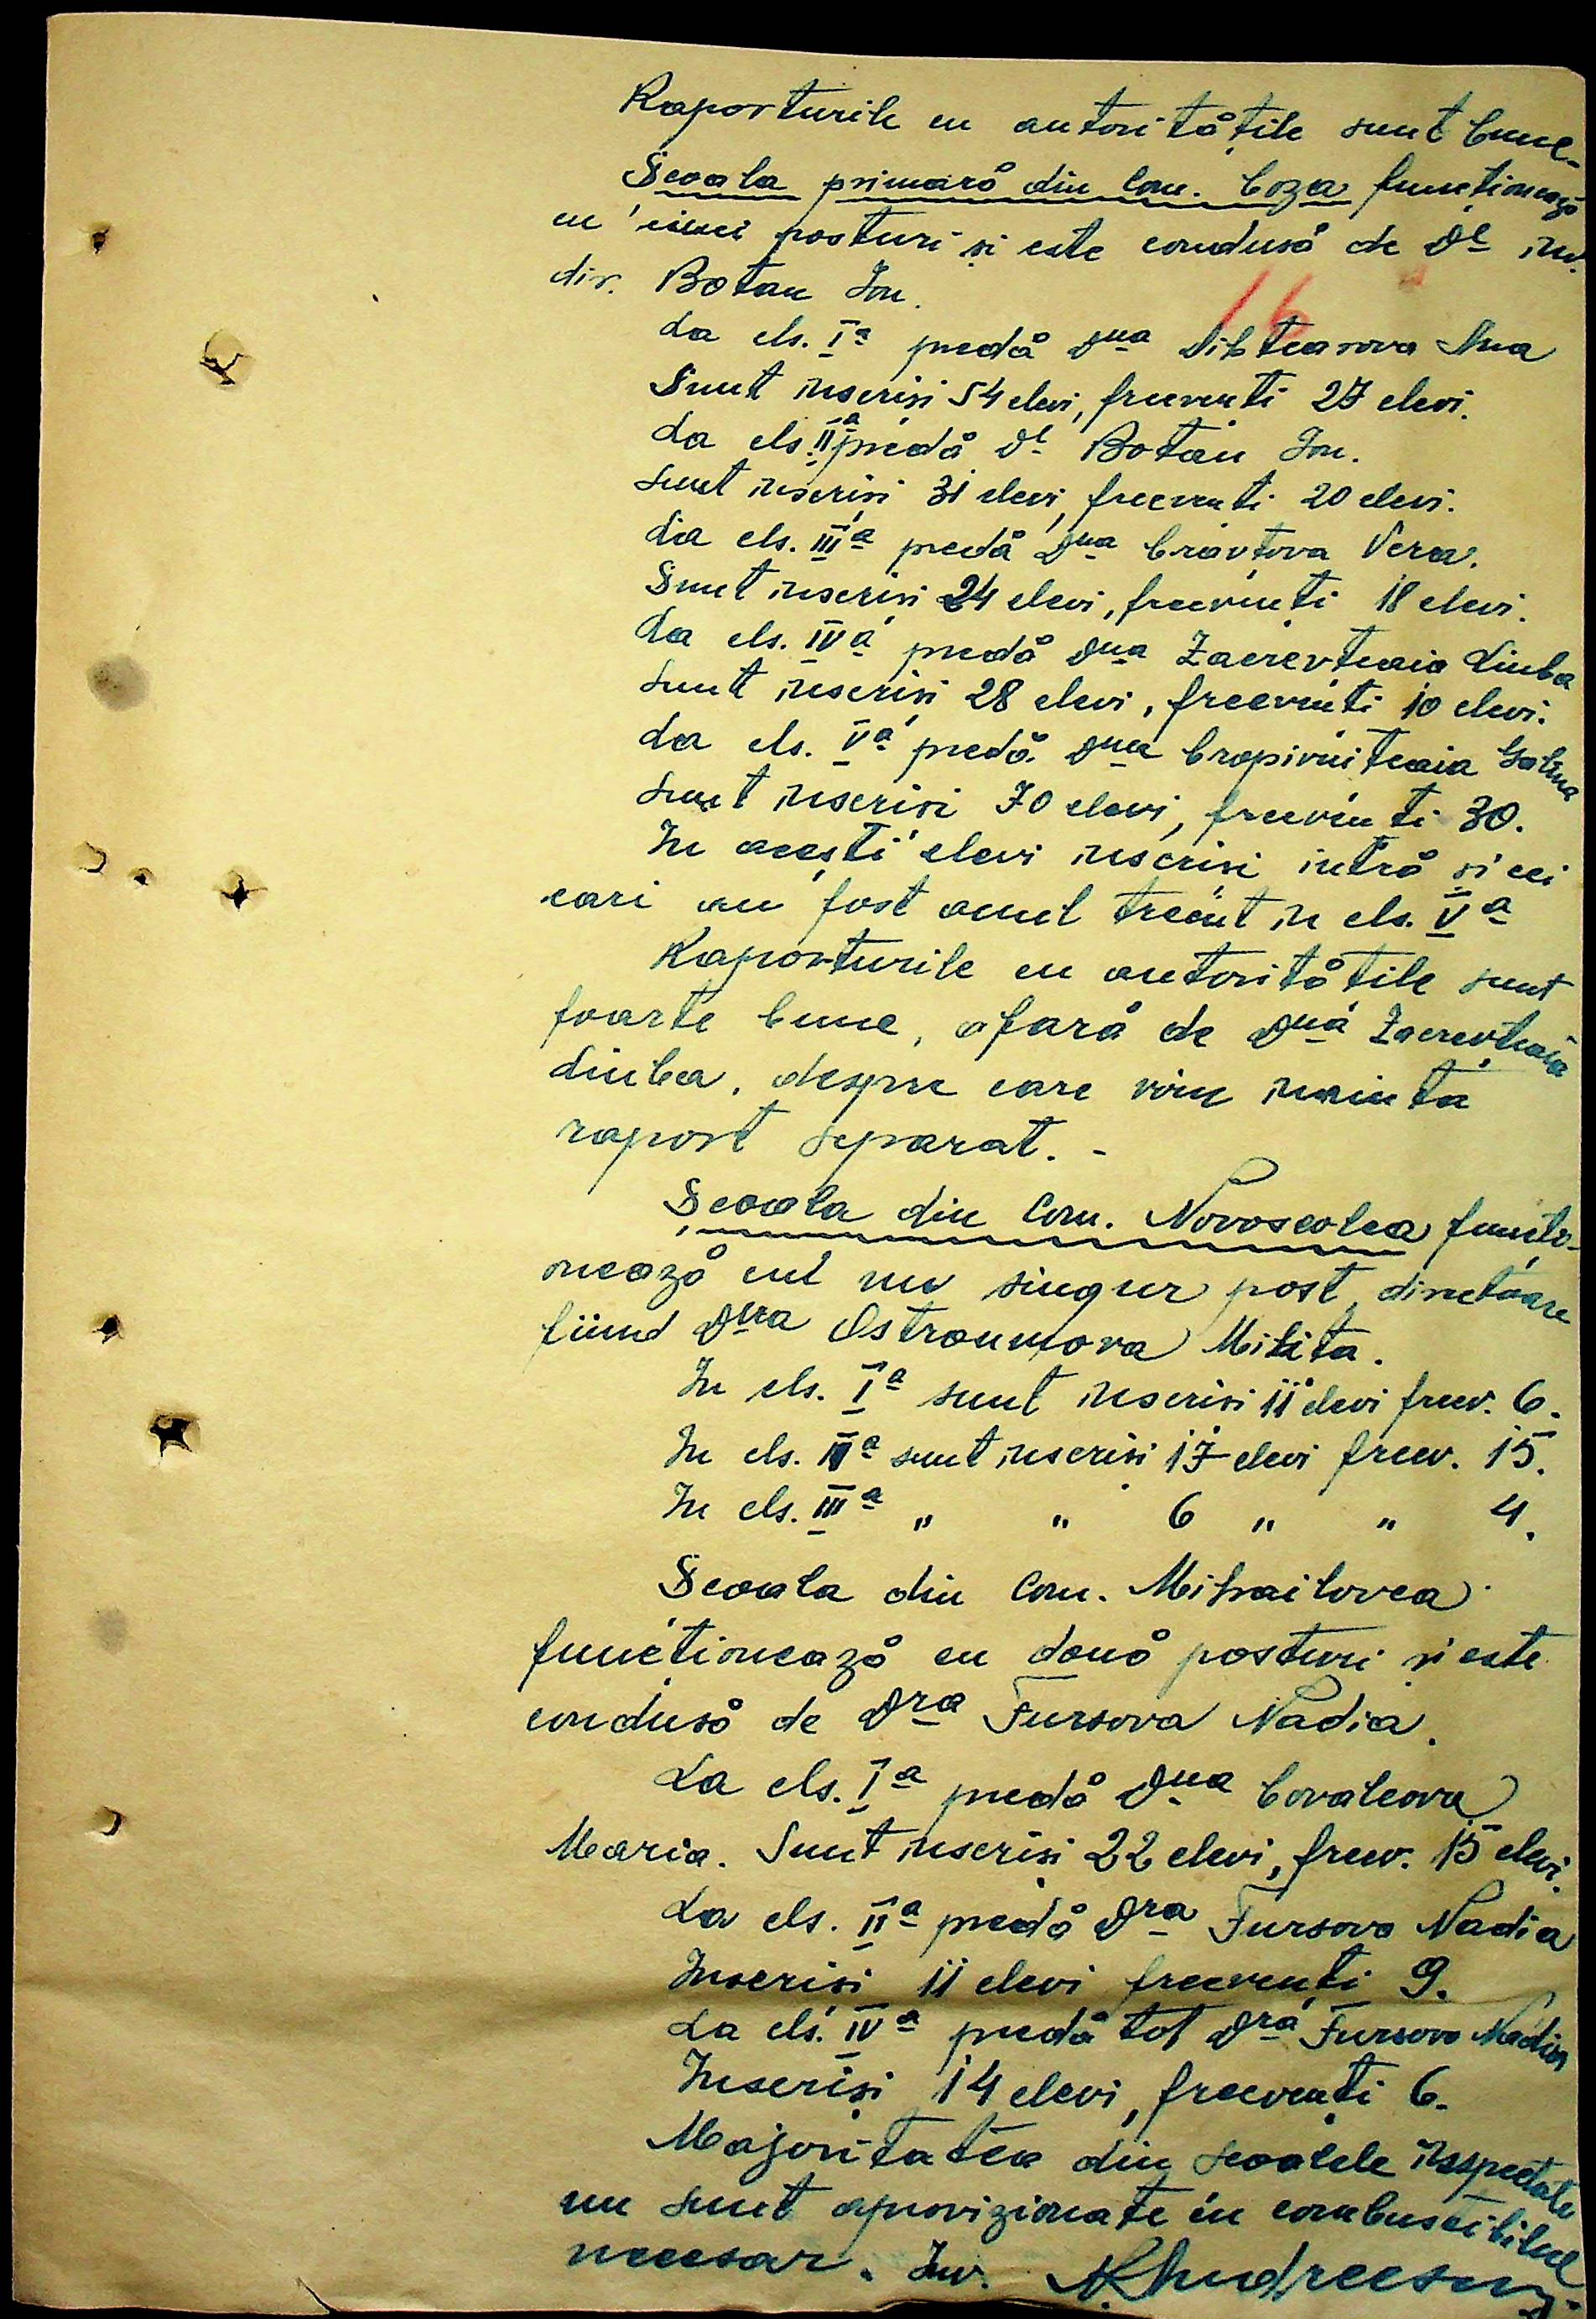 Raporturile cu autoritățile sunt bune.-
Școala primară din Com. Coza funcționează
cu cinci posturi și este condusă de Dl înv.
dir. Botan Ion.
16
La cls. Ia predă Dna Nina
Sunt înscriși 54 elevi, frecvenți 27 elevi.
La cls. IIa predă Dl Botan Ion.
Sunt înscriși 31 elevi, frecvenți 20 elevi.
La cls. IIIa predă Dna Cravțova Vera.
Sunt înscriși 24 elevi, frecvenți 18 elevi.
La cls. IVa predă Dna Zacrevtcaia Liuba
Sunt înscriși 28 elevi, frecvenți 10 elevi.
La cls. Va predă Dna Cropivnitcaia Galina
Sunt înscriși 70 elevi, frecvenți 30.
În acești elevi înscriși intră și cei
cari au fost anul trecut în cls. Va
Raporturile cu autoritățile sunt
foarte bune, afară de Dna Zacrevtcaia
Liuba, despre care vom înainta
raport separat. -
Școala din Com. Novoseolca funcțio-
nează cu un singur post, directoare
fiind Dna Ostroumova Milița.
În cls. Ia sunt înscriși 11 elevi frecv. 6.
În cls. IIa sunt înscriși 17 elevi frecv. 15.
În cls. IIIa " " 6 " " 4.
Școala din Com. Mihailovca
funcționează cu două posturi și este
condusă de Dra Fursova Nadia.
La cls. Ia predă Dna Covaleova
Maria. Sunt înscriși 22 elevi, frecv. 15 elevi.
La cls. IIa predă Dra Fursova Nadia
Înscriși 11 elevi frecvenți 9.
La cls. IVa predă tot Dra Fursova Nadia
Înscriși 14 elevi, frecvenți 6.
Majoritatea din școalele inspectate
nu sunt aprovizionate cu combustibilul
necesar. Înv.